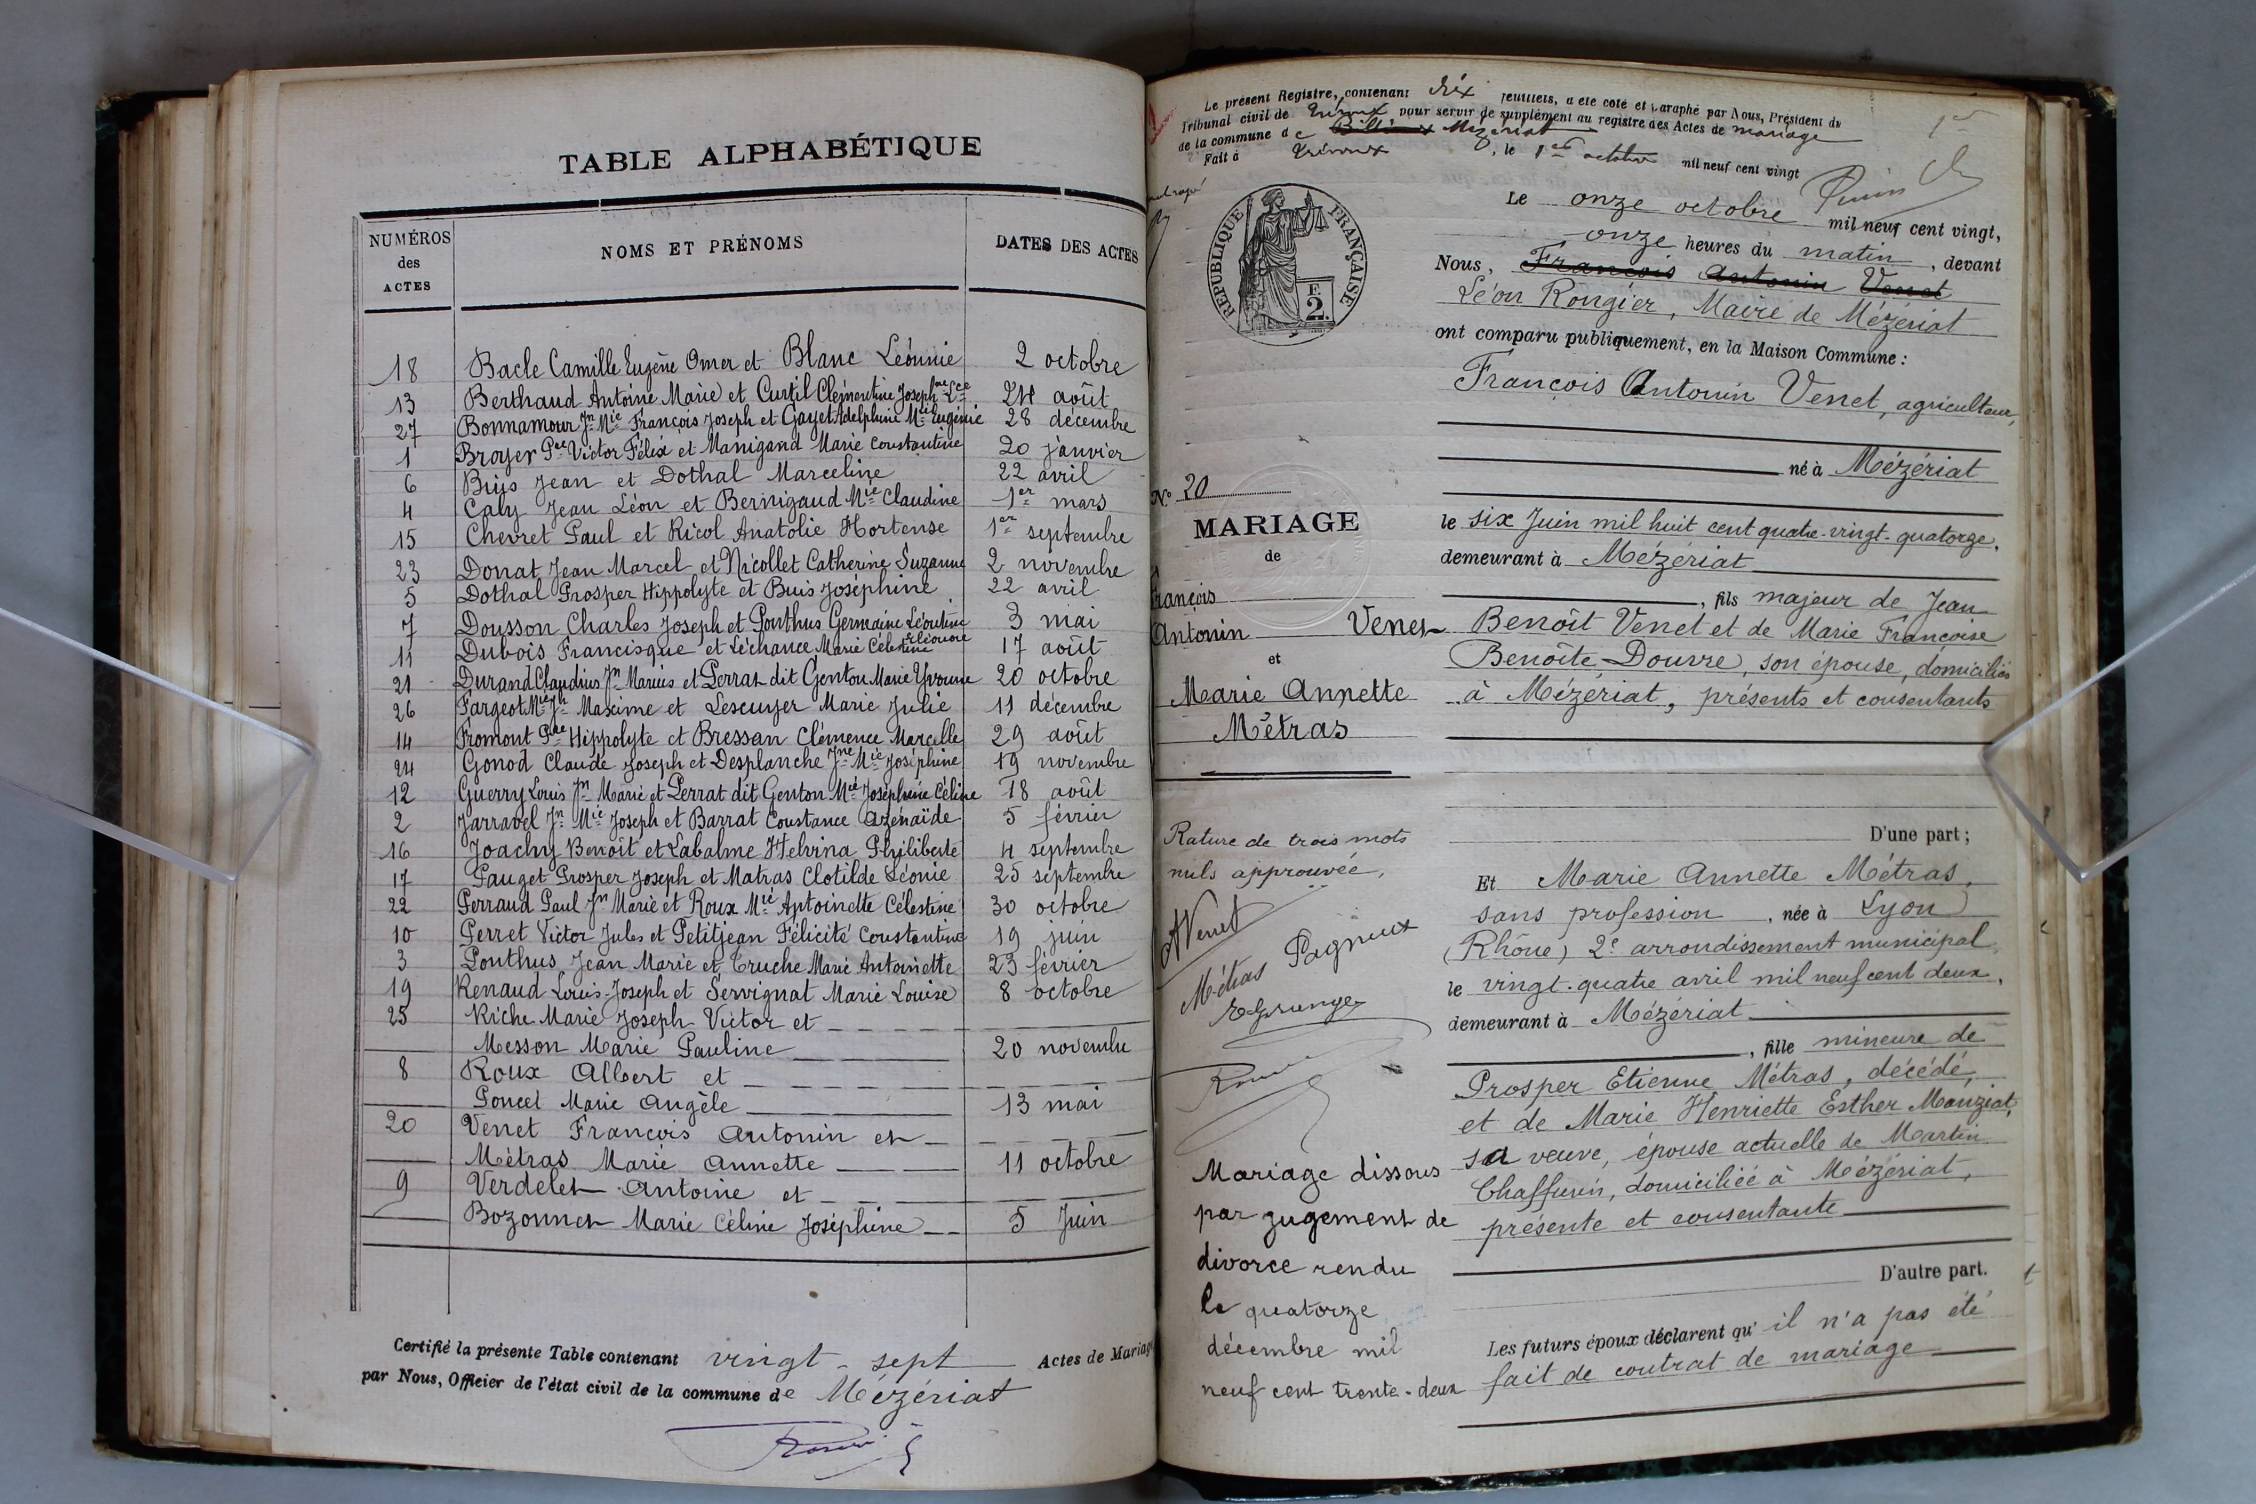 TABLE ALPHABÉTIQUE
NUMÉROS des ACTES NOMS ET PRÉNOMS DATES DES ACTES
18 Bacle Camille Eugène Omer et Blanc Léonnie 2 octobre
13 Berthaud Antoine Marie et Curtil Clémentine Josephne Lce 24 août
27 Bonnamour Jn Mie François Joseph et Gayet Adelphine Mie Eugénie 28 décembre
1 Broyer Pre Victor Félix et Manigand Marie Constantine 20 janvier
6 Buis Jean et Dothal Marceline 22 avril
4 Caly Jean Léon et Bernigaud Mie Claudine 1er mars
15 Chevret Paul et Ricol Anatolie Hortense 1er septembre
23 Donat Jean Marcel et Nicollet Catherine Suzanne 2 novembre
5 Dothal Prosper Hippolyte et Buis Joséphine 22 avril
7 Dousson Charles Joseph et Ponthus Germaine Léontine 3 mai
11 Dubois Francisque et Léchance Marie Célestine Eléonore 17 août
21 Durand Claudius Jn Marius et Perrat dit Genton Marie Yvonne 20 octobre
26 Fargeot Mie Jh Maxime et Lescuyer Marie Julie 11 décembre
14 Fromont Pre Hippolyte et Bressan Clémence Marcelle 29 août
24 Gonod Claude Joseph et Desplanche Jne Mie Joséphine 19 novembre
12 Guerry Louis Jn Marie et Perrat dit Genton Mie Joséphine Céline 18 août
2 Jarravel Jn Mie Joseph et Barrat Constance Azénaïde 5 février
16 Joachy Benoît et Labalme Helvina Philiberte 4 septembre
17 Pauget Prosper Joseph et Matras Clotilde Léonie 25 septembre
22 Perraud Paul Jn Marie et Roux Mie Antoinette Célestine 30 octobre
10 Perret Victor Jules et Petitjean Félicité Constantine 19 juin
3 Ponthus Jean Marie et Truche Marie Antoinette 23 février
19 Renaud Louis-Joseph et Servignat Marie Louise 8 octobre
25 Riche Marie Joseph Victor et
Messon Marie Pauline 20 novembre
8 Roux Albert et
Poncet Marie Angèle 13 mai
20 Venet François Antonin et
Métras Marie Annette 11 octobre
9 Verdelet Antoine et
Bozonnet Marie Céline Joséphine 5 Juin
Certifié la présente Table contenant vingt-sept Actes de Mariage
par Nous, Officier de l'état civil de la commune de Mézériat
Le présent Registre, contenant dix feuillets, a été coté et paraphé par Nous, Président du
Tribunal civil de Trévoux, pour servir de supplément au registre des Actes de mariage
de la commune de Mézériat
Fait à Trévoux, le 1er octobre mil neuf cent vingt
1er
REPUBLIQUE FRANÇAISE
F.
2.
Le onze octobre mil neuf cent vingt,
onze heures du matin, devant
Nous, François Antonin Venet
Léon Rongier, Maire de Mézériat
ont comparu publiquement, en la Maison Commune :
François Antonin Venet, agriculteur,
né à Mézériat
le six Juin mil huit cent quatre-vingt-quatorze,
demeurant à Mézériat
, fils majeur de Jean
Benoît Venet et de Marie Françoise
Benoîte Douvre, son épouse, domiciliés
à Mézériat, présents et consentants
D'une part ;
Et Marie Annette Métras,
sans profession, née à Lyon
(Rhône) 2e arrondissement municipal,
le vingt-quatre avril mil neuf cent deux,
demeurant à Mézériat
, fille mineure de
Prosper Etienne Métras, décédé,
et de Marie Henriette Esther Mouziat,
sa veuve, épouse actuelle de Martin
Chaffurin, domiciliée à Mézériat,
présente et consentante
D'autre part.
Les futurs époux déclarent qu'il n'a pas été
fait de contrat de mariage
No 20
MARIAGE
de
François
Antonin Venet
et
Marie Annette
Métras
Rature de trois mots
nuls approuvée,
AVenet
Métras Pagneux
Mariage dissous
par jugement de
divorce rendu
le quatorze
décembre mil
neuf cent trente-deux